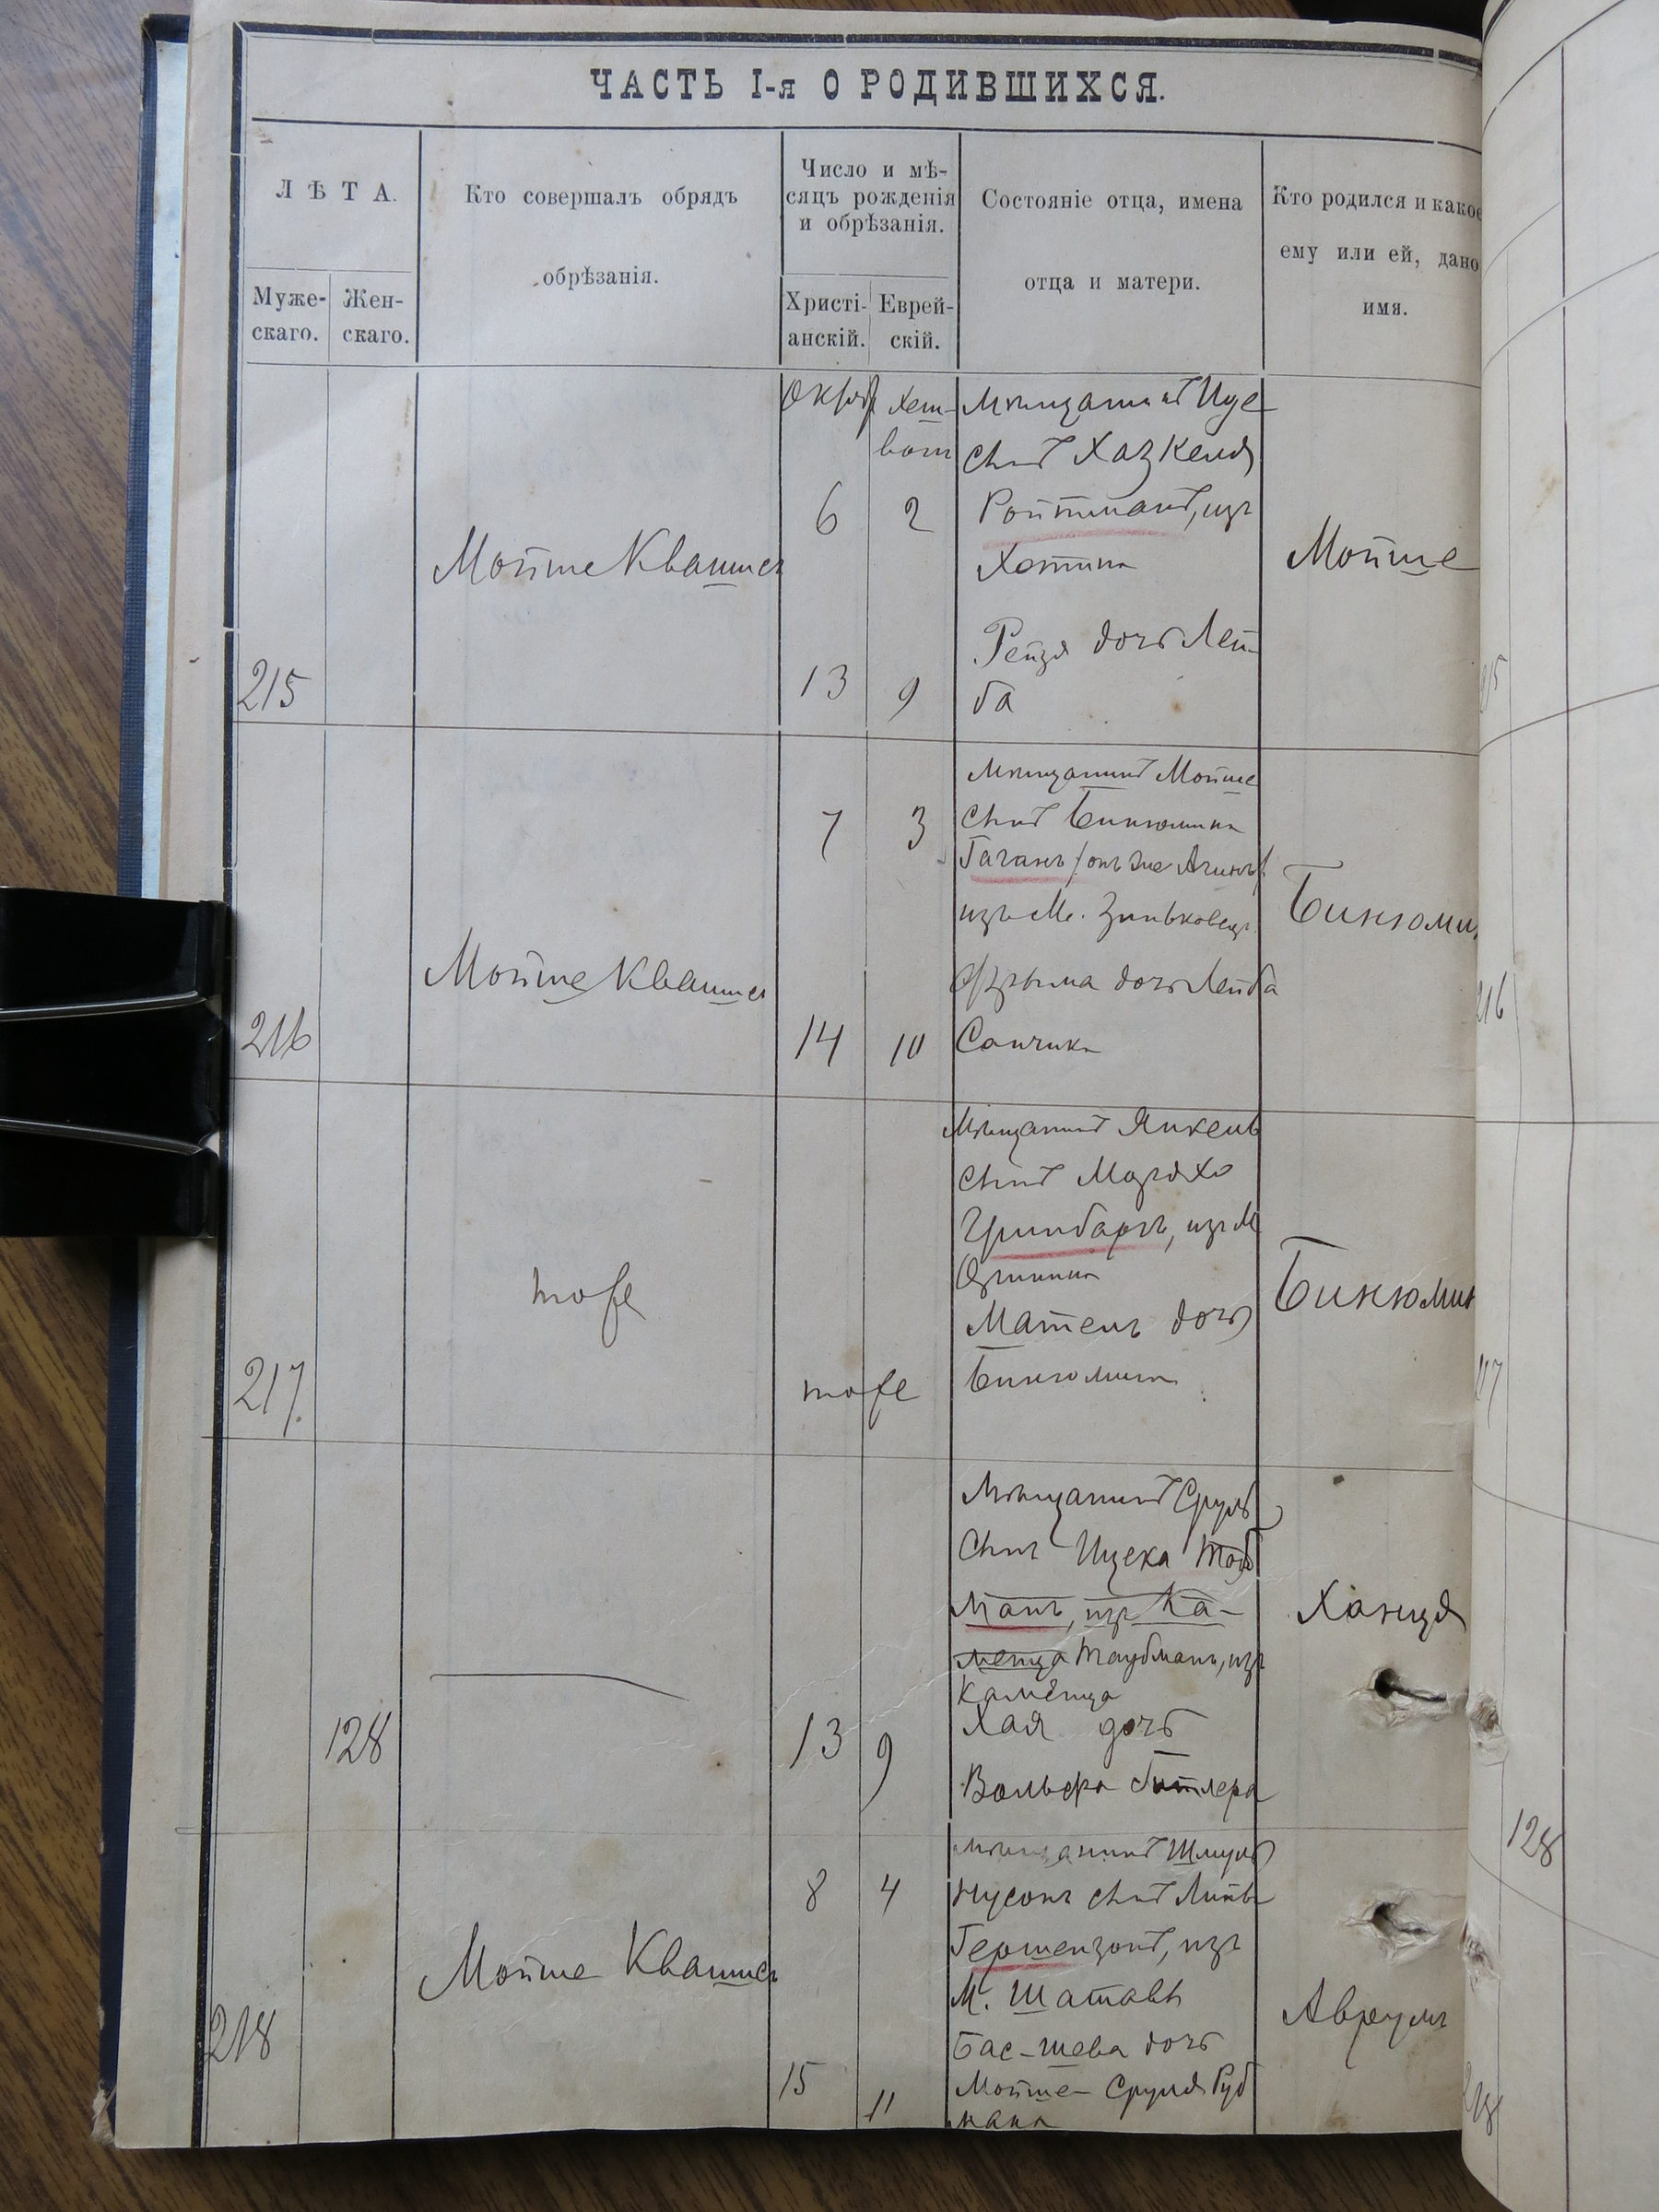 ЧАСТЬ I-я О РОДИВШИХСЯ.
ЛѢТА.
Муже-
скаго.
Жен-
скаго.
Кто совершалъ обрядъ
обрѣзанія.
Число и мѣ-
сяцъ рожденія
и обрѣзанія.
Христі-
анскій.
Еврей-
скій.
Состояніе отца, имена
отца и матери.
Кто родился и какое
ему или ей, дано
имя.
215
Мойше Квашис
Октяб
6
13
Хеш-
вон
2
9
мѣщанинъ Иде
сынъ Хазкеля
Ройтманъ, изъ
Хотина
Рейзя дочь Лей-
ба
Мойше
216
Мойше Квашис
7
14
3
10
мѣщанинъ Мойше
сынъ Бинюмина
Гаганъ (онъ же Агинъ)
изъ М. Зиньковецъ
Фрыма дочь Лейба
Санчика
Бинюмин
217.
тоже
тоже
Мѣщанинъ Янкель
сынъ Мордхо
Гринбаргъ, изъ М
Матель дочь
Бинюмина
Бинюмин
128
13
9
Мѣщанинъ Сруль
сынъ Ицека Тод
манъ, изъ Ка-
менца Таубманъ, изъ
Каменца
Хая дочь
Вольфа Гитлера
Ханця
218
Мойше Квашис
8
15
4
11
мѣщанинъ Шмуль
Нусонъ сынъ Лейви
Гершензонъ, изъ
М. Шатавы
Бас-шева дочь
Мойше-Сруля Гуд
мана
Авремъ
216
128